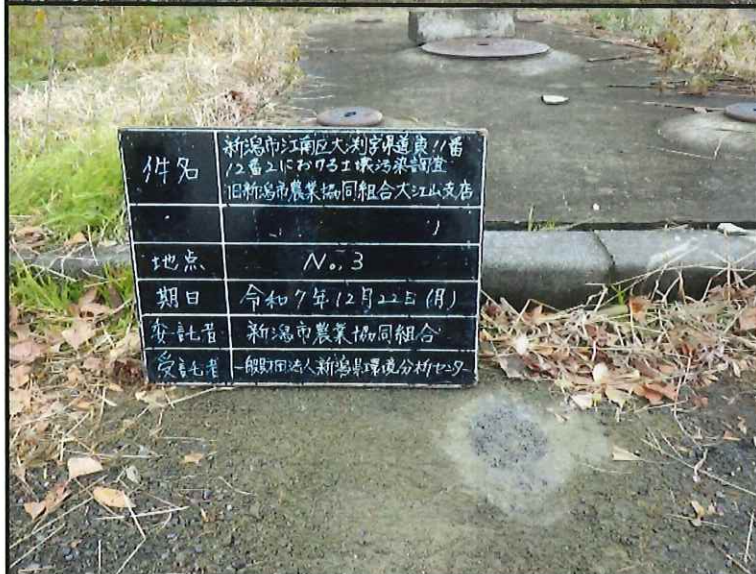 件名
新潟市江南区大渕字県道東11番
12番2における土壌汚染調査
旧新潟市農業協同組合大江山支店
地点
No.3
期日
令和7年12月22日(月)
委託者
新潟市農業協同組合
受託者
一般財団法人新潟県環境分析センター